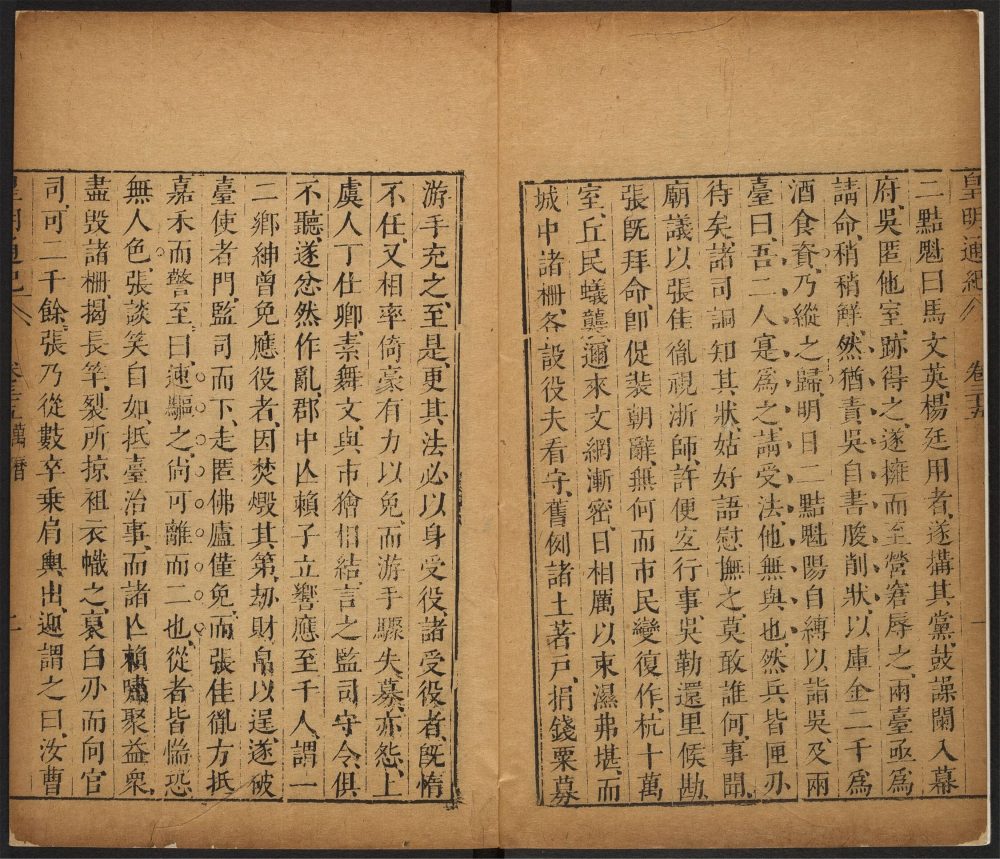 皇明通紀
卷三十五
一
二點魁曰馬文英楊廷用者遂搆其黨鼓譟闌入幕
府吳匿他室跡得之遂擁而至營窘辱之兩臺亟爲
請命稍稍解然猶責吳自書朘削狀以庫金二千爲
酒食資乃縱之歸明日二點魁陽自縛以詣吳及兩
臺曰吾二人寔爲之請受法他無與也然兵皆匣刃
待矣諸司詗知其狀姑好語慰撫之莫敢誰何事聞
廟議以張佳胤視浙師許便宐行事吳勒還里候勘
張旣拜命卽促裝朝辭無何而市民變復作杭十萬
室丘民蟻襲邇來文網漸密日相厲以束濕弗堪而
城中諸柵各設役夫看守舊例諸土著戸捐錢粟募
游手充之至是更其法必以身受役諸受役者旣惰
不任又相率倚豪有力以免而游手驟失募亦怨上
虞人丁仕卿素舞文與市獪相結言之監司守令俱
不聽遂忿然作亂郡中亾賴子立響應至千人謂一
二鄉紳曾免應役者因焚燬其第劫財帛以逞遂破
臺使者門監司而下走匿佛廬僅免而張佳胤方抵
嘉禾而警至曰速驅之尙可離而二也從者皆惴恐
無人色張談笑自如抵臺治事而諸亾賴嘯聚益衆
盡毁諸柵揭長竿裂所掠袒衣幟之裹白刃而向官
司可二千餘張乃從數卒乗肩輿出迎謂之曰汝曹
皇明通紀
卷三十五 萬曆
二